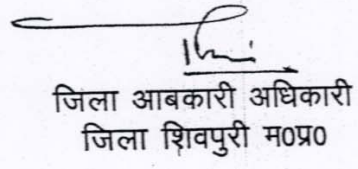 जिला आबकारी अधिकारी
जिला शिवपुरी म0प्र0